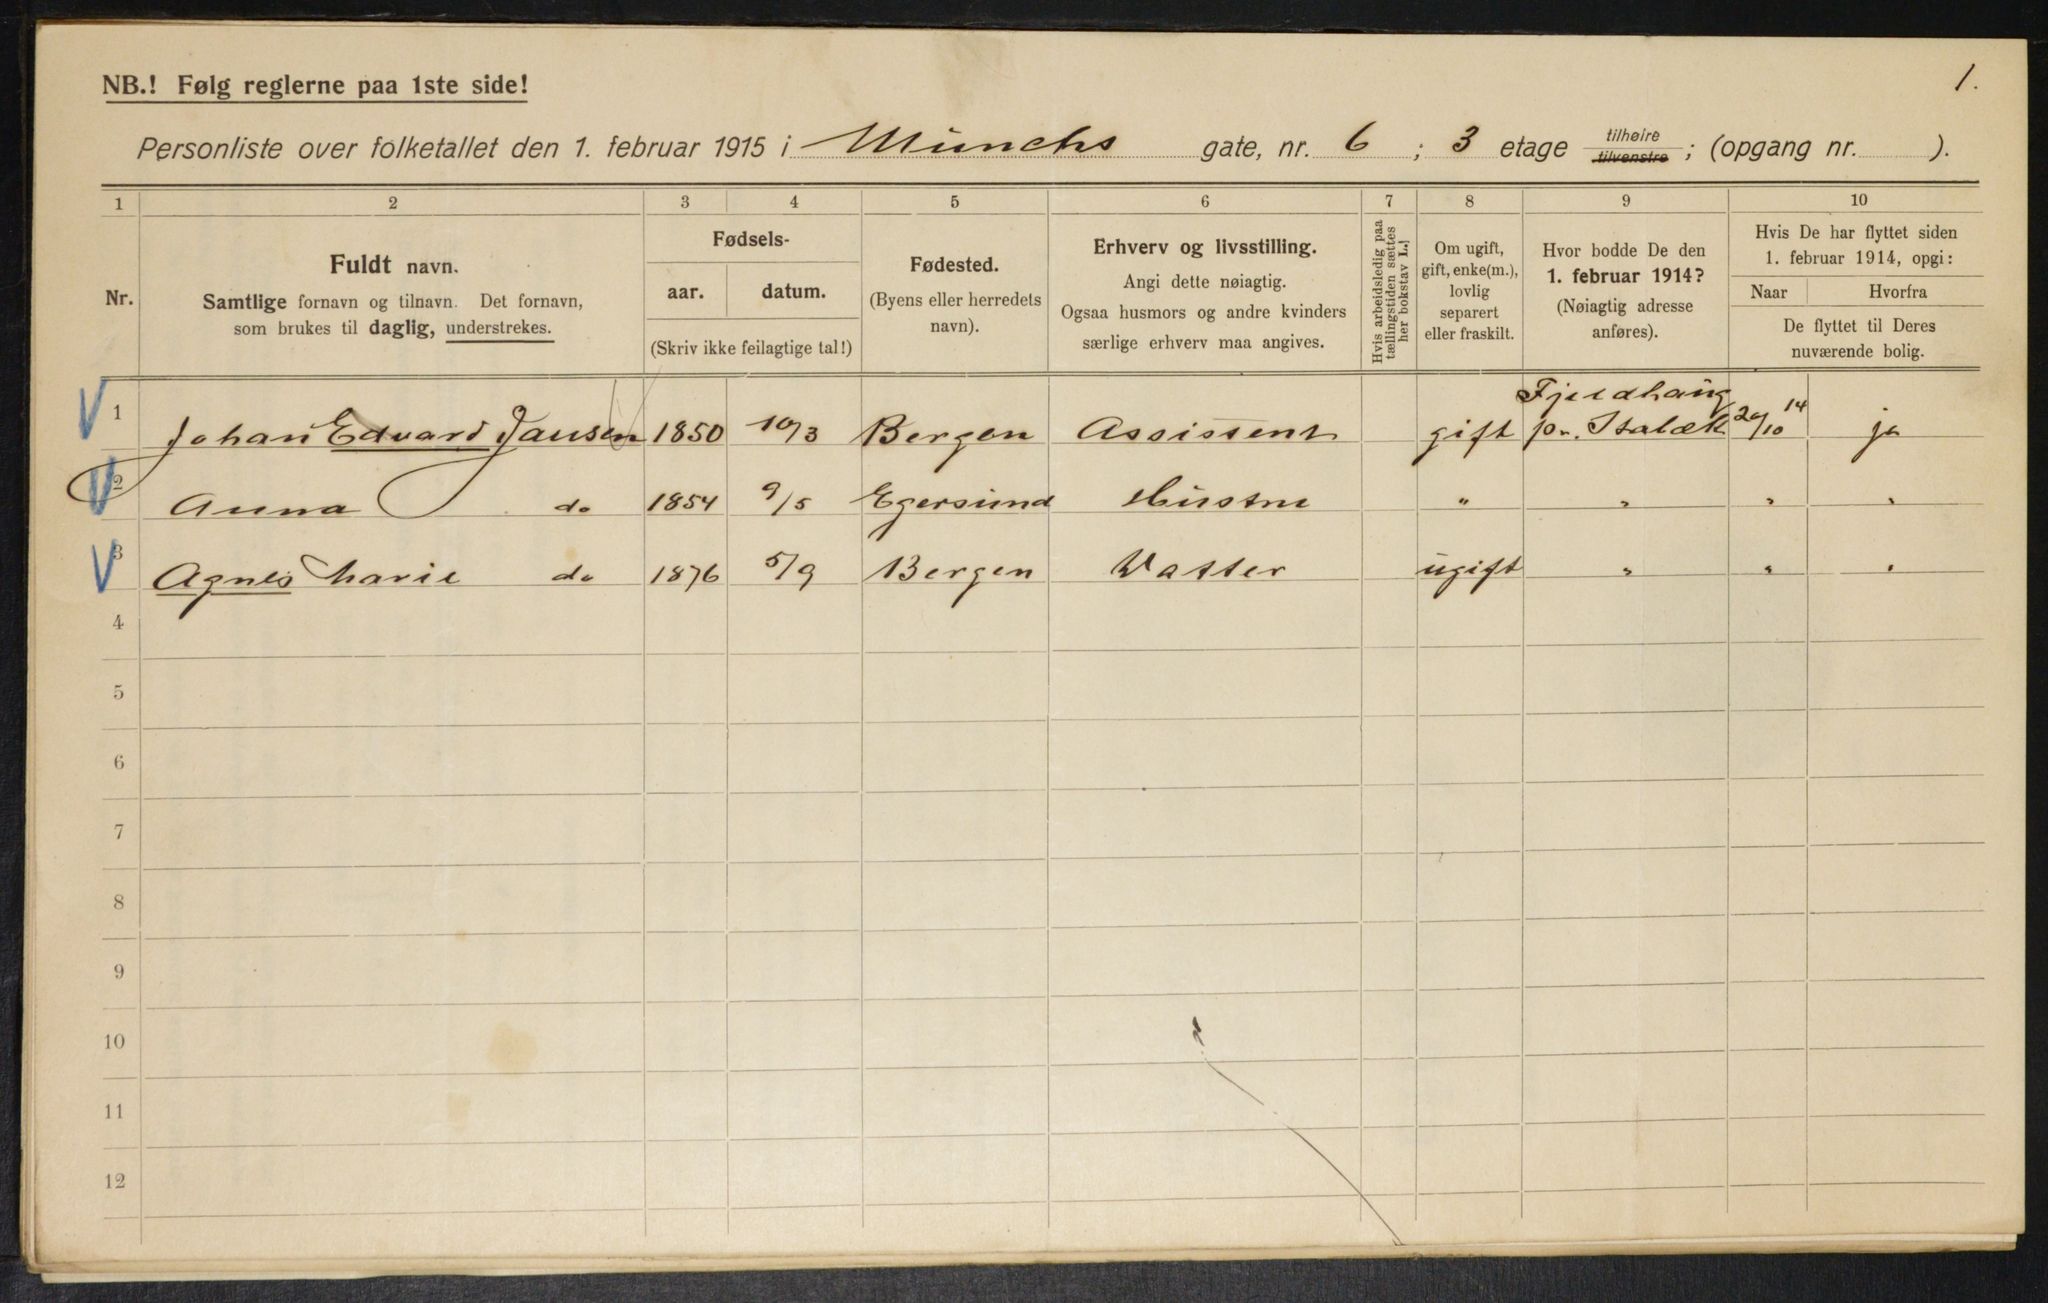 1.
NB.! Følg reglerne paa 1ste side!
Personliste over folketallet den 1. februar 1915 i Münchs gate, nr. 6 ; 3 etage tilhøire tilvenstre ; (opgang nr. ).
1 2 3 4 5 6 7 8 9 10
Nr.
Fuldt navn.
Samtlige fornavn og tilnavn. Det fornavn,
som brukes til daglig, understrekes.
Fødsels-
aar. datum.
(Skriv ikke feilagtige tal!)
Fødested.
(Byens eller herredets
navn).
Erhverv og livsstilling.
Angi dette nøiagtig.
Ogsaa husmors og andre kvinders
særlige erhverv maa angives.
Hvis arbeidsledig paa
tællingstiden sættes
her bokstav L.)
Om ugift,
gift, enke(m.),
lovlig
separert
eller fraskilt.
Hvor bodde De den
1. februar 1914?
(Nøiagtig adresse
anføres).
Hvis De har flyttet siden
1. februar 1914, opgi:
Naar Hvorfra
De flyttet til Deres
nuværende bolig.
1 Johan Edvard Jansen 1850 10/3 Bergen Assistent gift Fjeldhaug pr. 20/10 14 ja
2 Anna do 1854 9/5 Egersund Hustru " " " "
3 Agnes Marie do 1876 5/9 Bergen Datter ugift " " "
4
5
6
7
8
9
10
11
12